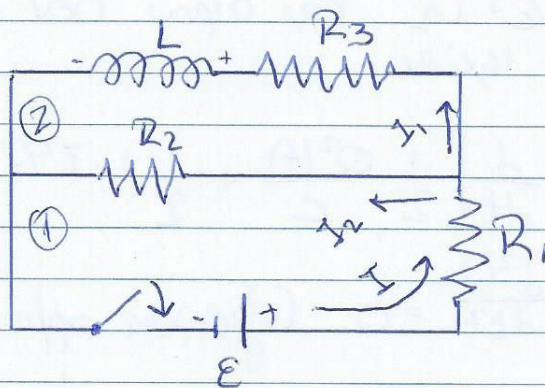 L
R3
- +
②
R2
I1
①
I2
R1
I
- +
ε